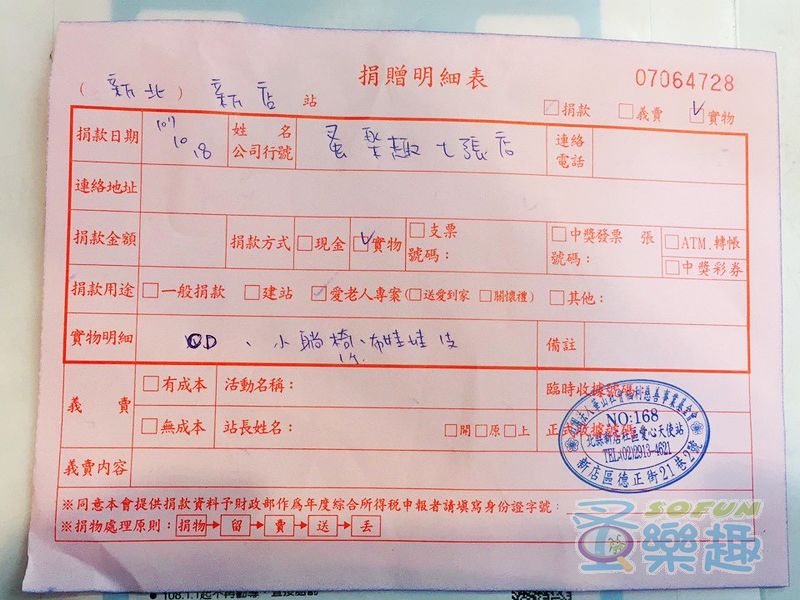 捐贈明細表 07064728
(新北) 新店 站
☑捐款 □義賣 ☑實物
捐款日期 107 10 18 姓名 公司行號 蚤樂趣七張店 連絡電話
連絡地址
捐款金額 捐款方式 □現金 ☑實物 □支票 號碼： □中獎發票 張 號碼： □ATM.轉帳 □中獎彩券
捐款用途 □一般捐款 □建站 ☑愛老人專案(□送愛到家 □關懷禮) □其他：
實物明細 CD、小躺椅、布娃娃 備註
義賣 □有成本 活動名稱： 臨時收據號碼
□無成本 站長姓名： □開□原□上 正式收據號碼
義賣內容
社會福利慈善事業基金會
NO:168
北縣新店社區愛心天使站
TEL:(02)2913-4621
新店區德正街21巷2號
※同意本會提供捐款資料予財政部作為年度綜合所得稅申報者請填寫身份證字號：
※捐物處理原則：捐物→留→賣→送→丟
SOFUN
蚤樂趣